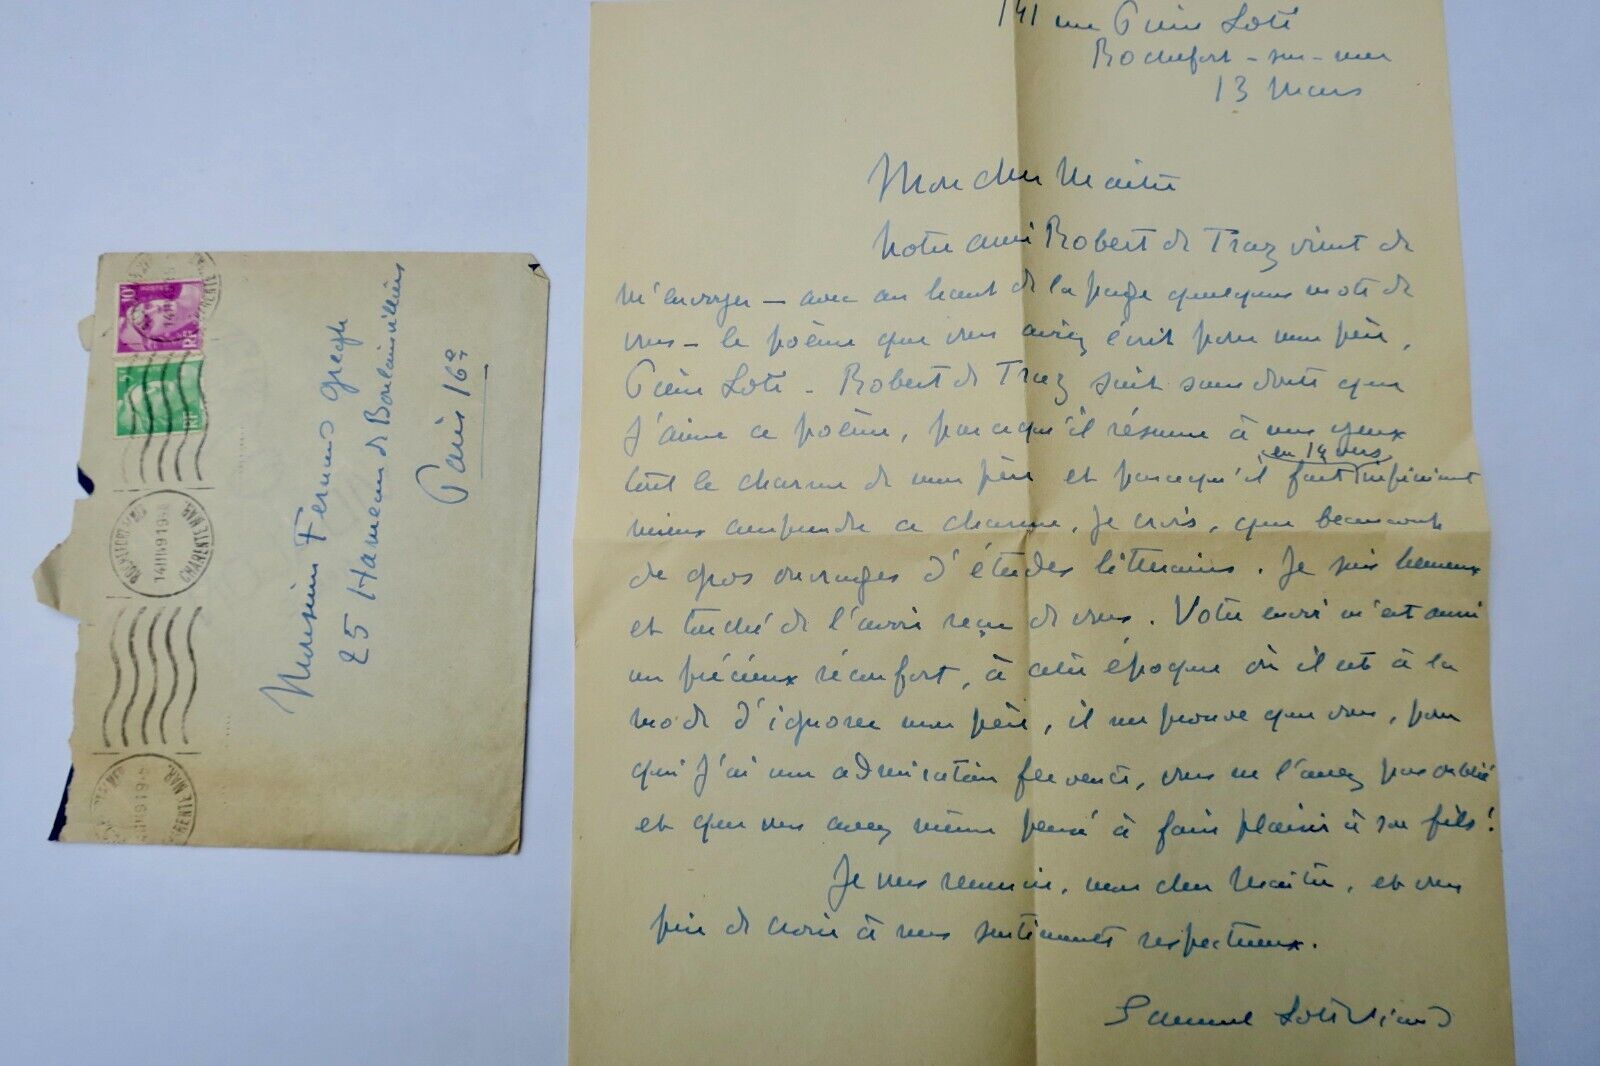 141 rue Pierre Loti
Rochefort-sur-mer
13 Mars
Mon cher Maître
Notre ami Robert de Traz vient de
m'envoyer — avec au haut de la page quelques mots de
vous — le poème que vous aviez écrit pour mon père,
Pierre Loti - Robert de Traz sait sans doute que
j'aime ce poème, parce qu'il résume à mes yeux
tout le charme de mon père et parce qu'il fait en 14 vers infiniment
mieux comprendre ce charme, je crois, que beaucoup
de gros ouvrages d'études littéraires. Je suis heureux
et touché de l'avoir reçu de vous. Votre envoi m'est aussi
un précieux réconfort, à cette époque où il est à la
mode d'ignorer mon père, il me prouve que vous, pour
qui j'ai une admiration fervente, vous ne l'avez pas oublié
et que vous avez même pensé à faire plaisir à son fils!
Je vous remercie, mon cher Maître, et vous
prie de croire à mes sentiments respectueux.
Samuel Loti-Viaud
Monsieur Fernand Gregh
25 Hameau de Boulainvilliers
Paris 16e
10F
RF
RF
ROCHEFORT
14 III 49
CHARENTE MAR.
CHARENTE MAR.